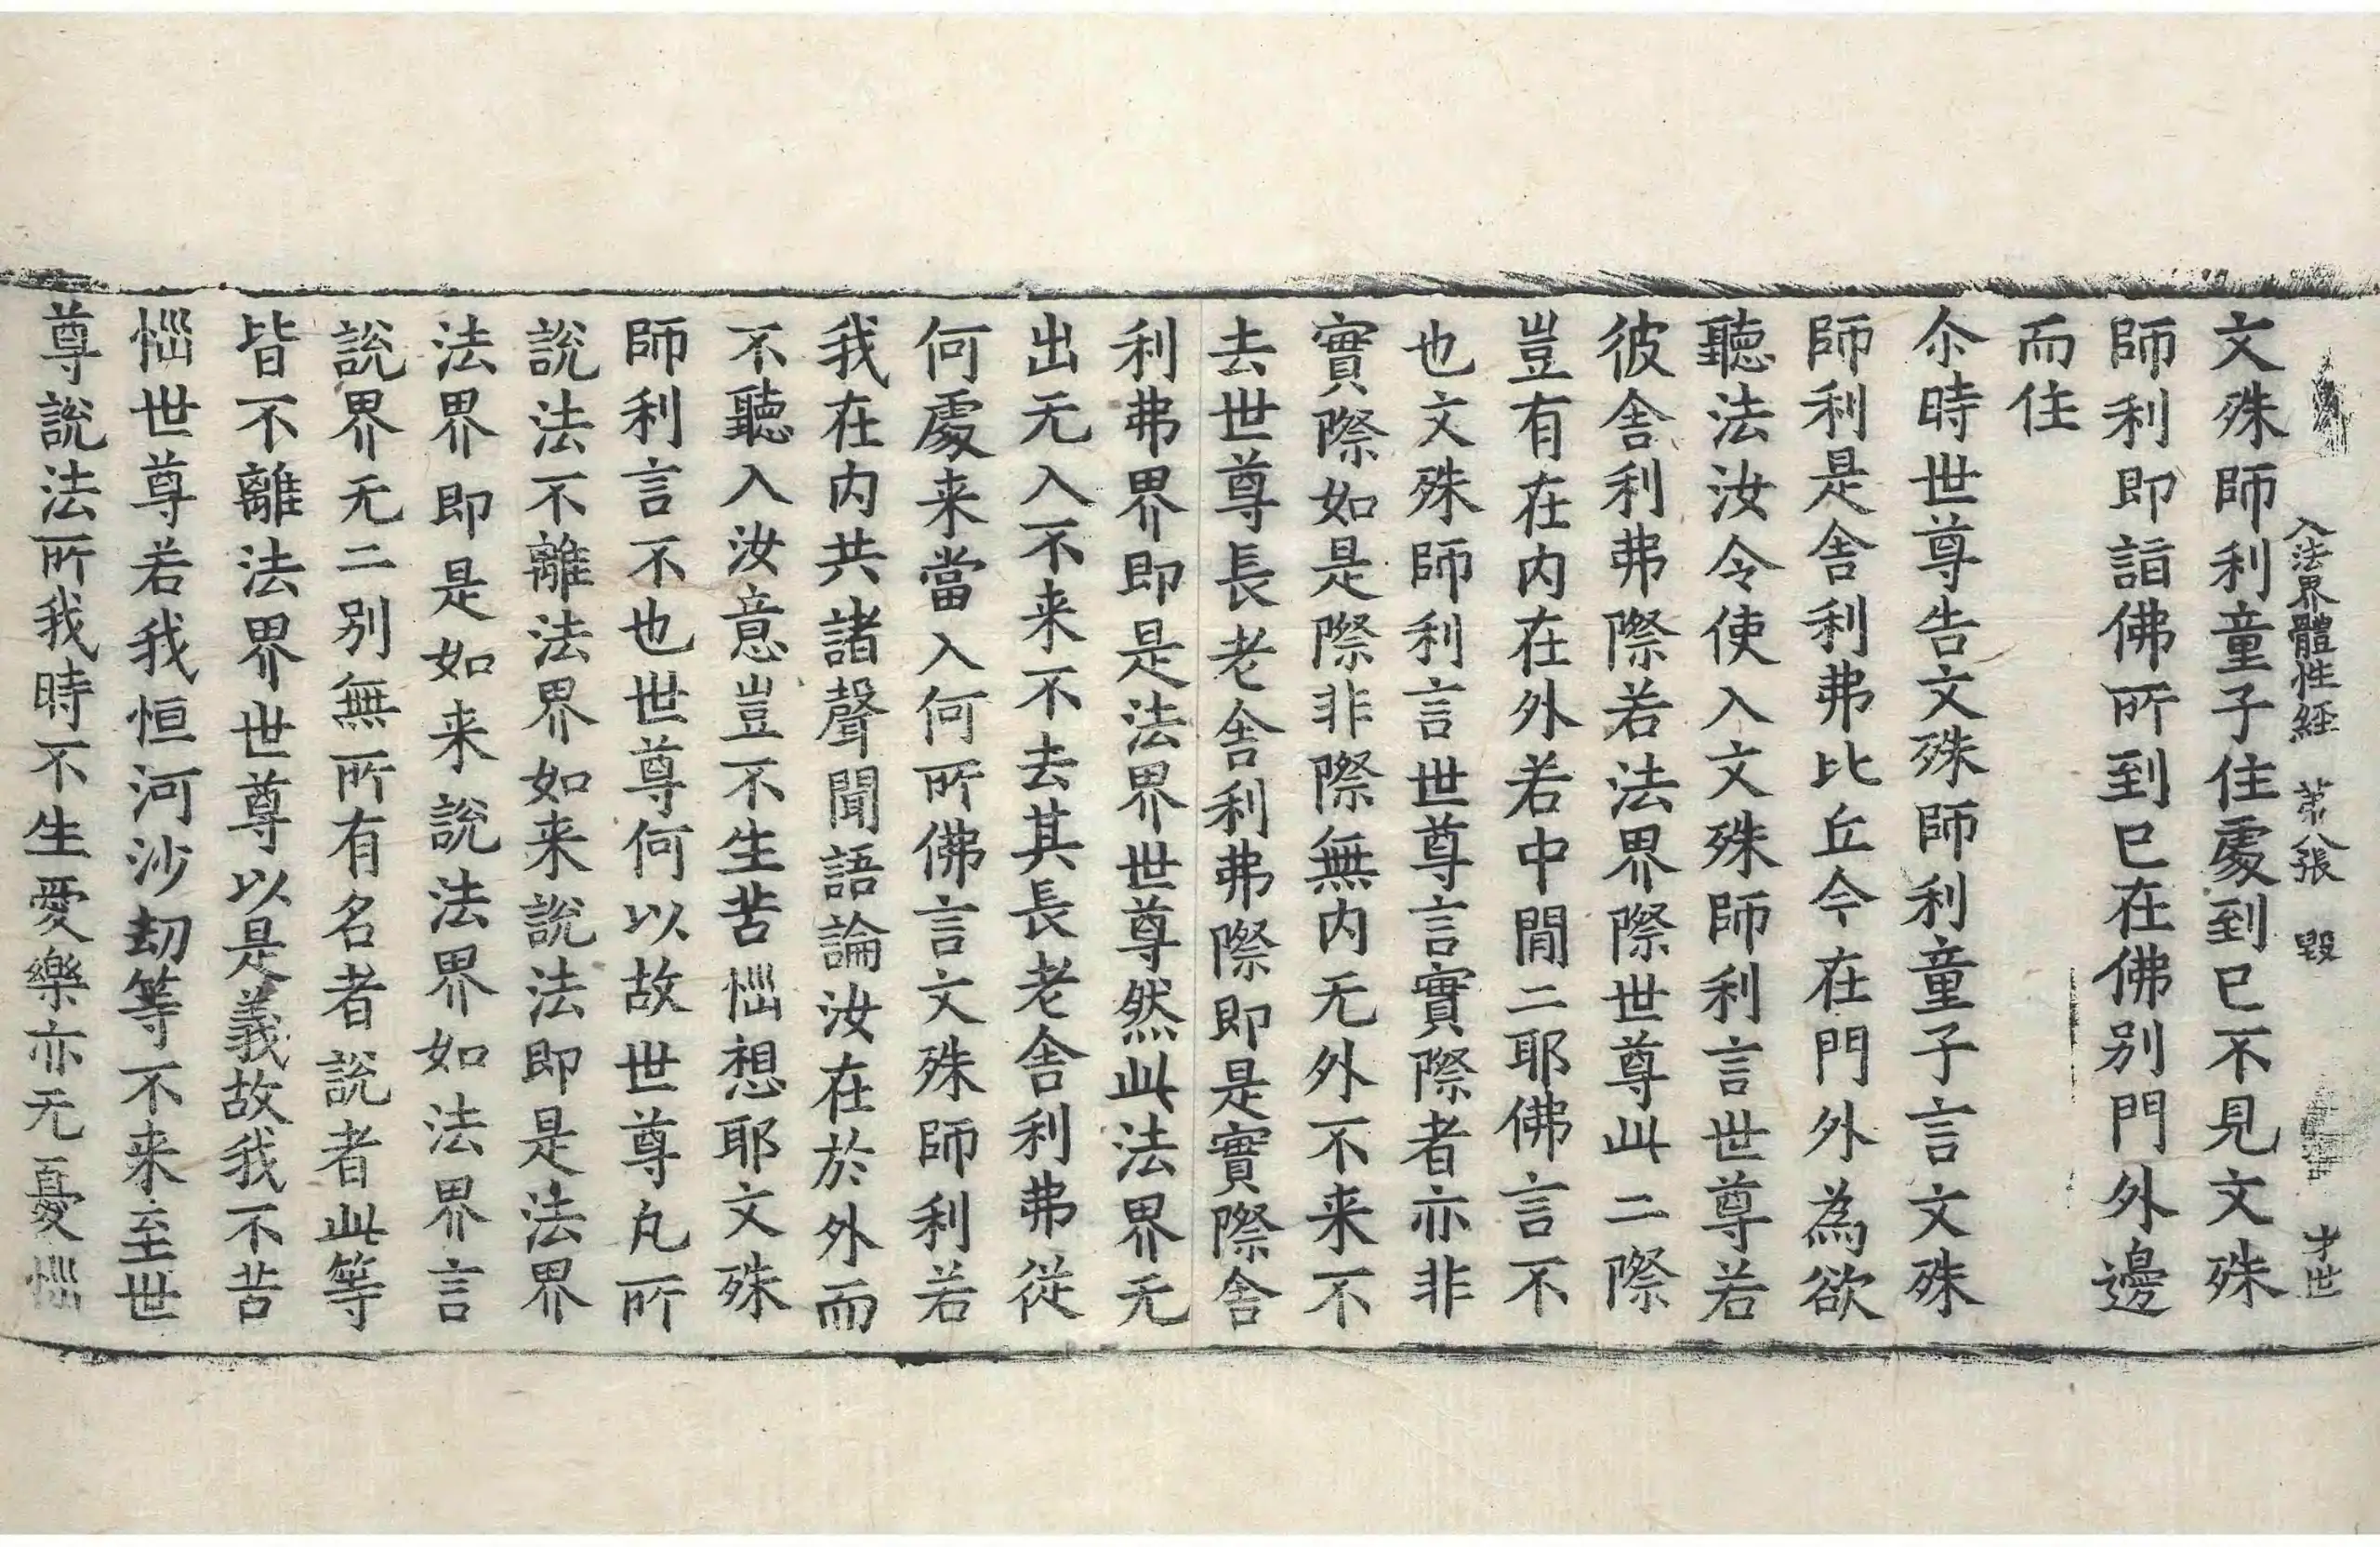 入法界體性経 苐八張 毀 才世
文殊師利童子住處到已不見文殊
師利即詣佛所到已在佛別門外邊
而住
尒時世尊告文殊師利童子言文殊
師利是舍利弗比丘今在門外為欲
聽法汝令使入文殊師利言世尊若
彼舍利弗際若法界際世尊此二際
豈有在内在外若中閒二耶佛言不
也文殊師利言世尊言實際者亦非
實際如是際非際無内无外不来不
去世尊長老舍利弗際即是實際舍
利弗界即是法界世尊然此法界无
出无入不来不去其長老舍利弗從
何處来當入何所佛言文殊師利若
我在内共諸聲聞語論汝在於外而
不聽入汝意豈不生苦惱想耶文殊
師利言不也世尊何以故世尊凡所
說法不離法界如来說法即是法界
法界即是如来說法界如法界言
說界无二别無所有名者說者此等
皆不離法界世尊以是義故我不苦
惱世尊若我恒河沙劫等不来至世
尊說法所我時不生愛樂亦无憂惱